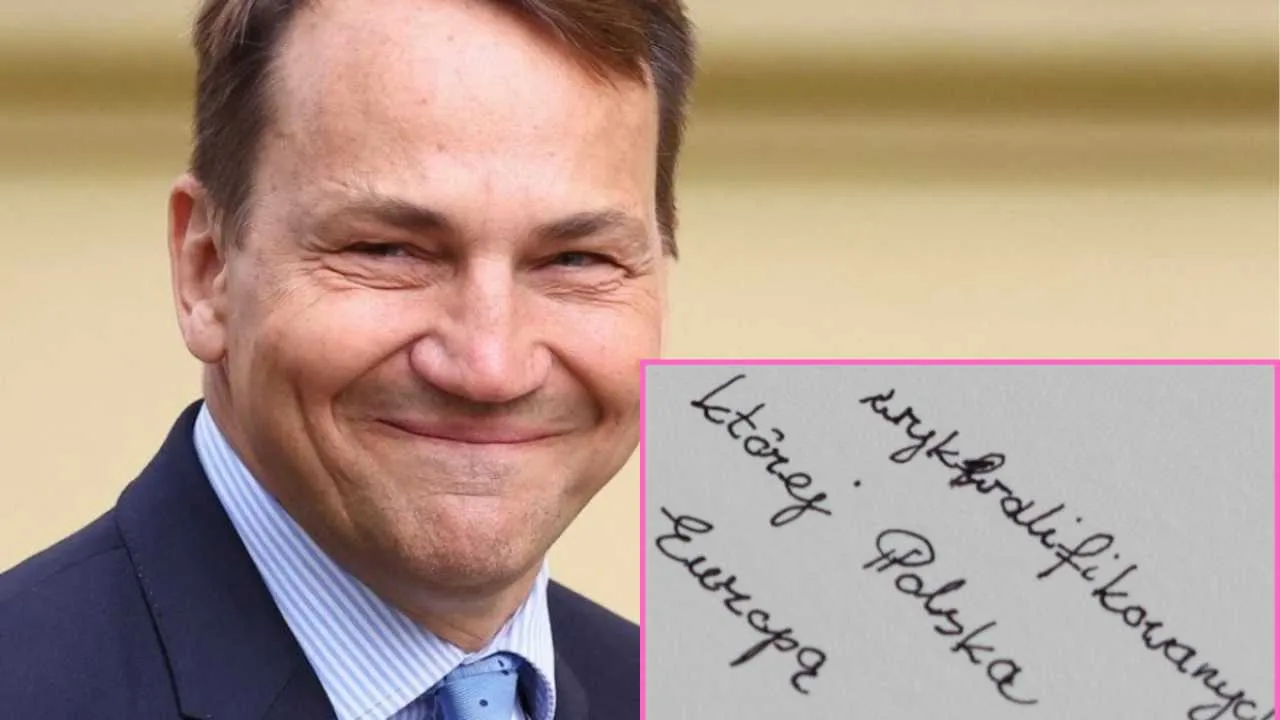 wykwalifikowanych
której Polska
Europą